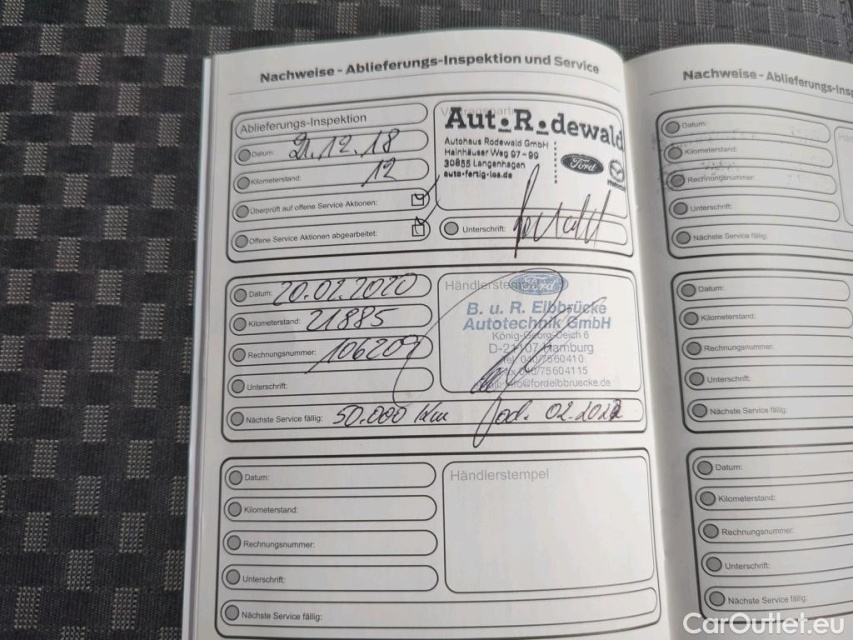 Nachweise - Ablieferungs-Inspektion und Service
Ablieferungs-Inspektion
Datum: 21.12.18
Kilometerstand: 12
Überprüft auf offene Service Aktionen:
Offene Service Aktionen abgearbeitet:
Aut.R.dewald
Autohaus Rodewald GmbH
Hainhäuser Weg 97-99
30855 Langenhagen
auto-fertig-los.de
Ford
Unterschrift:
Datum: 20.02.2020
Kilometerstand: 21885
Rechnungsnummer: 106207
Unterschrift:
Nächste Service fällig: 50.000 km od. 02.2022
Händlerstempel
Ford
B. u. R. Elbbrücke
Autotechnik GmbH
König-Georg-Deich 6
D-21107 Hamburg
Tel. 040/7560410
Fax 040/75604115
info@fordelbbruecke.de
Datum:
Kilometerstand:
Rechnungsnummer:
Unterschrift:
Nächste Service fällig:
Händlerstempel
Nachweise - Ablieferungs-Insp
Datum:
Kilometerstand:
Rechnungsnummer:
Unterschrift:
Nächste Service fällig:
Datum:
Kilometerstand:
Rechnungsnummer:
Unterschrift:
Nächste Service fällig:
Datum:
Kilometerstand:
Rechnungsnummer:
Unterschrift:
Nächste Service fällig:
CarOutlet.eu